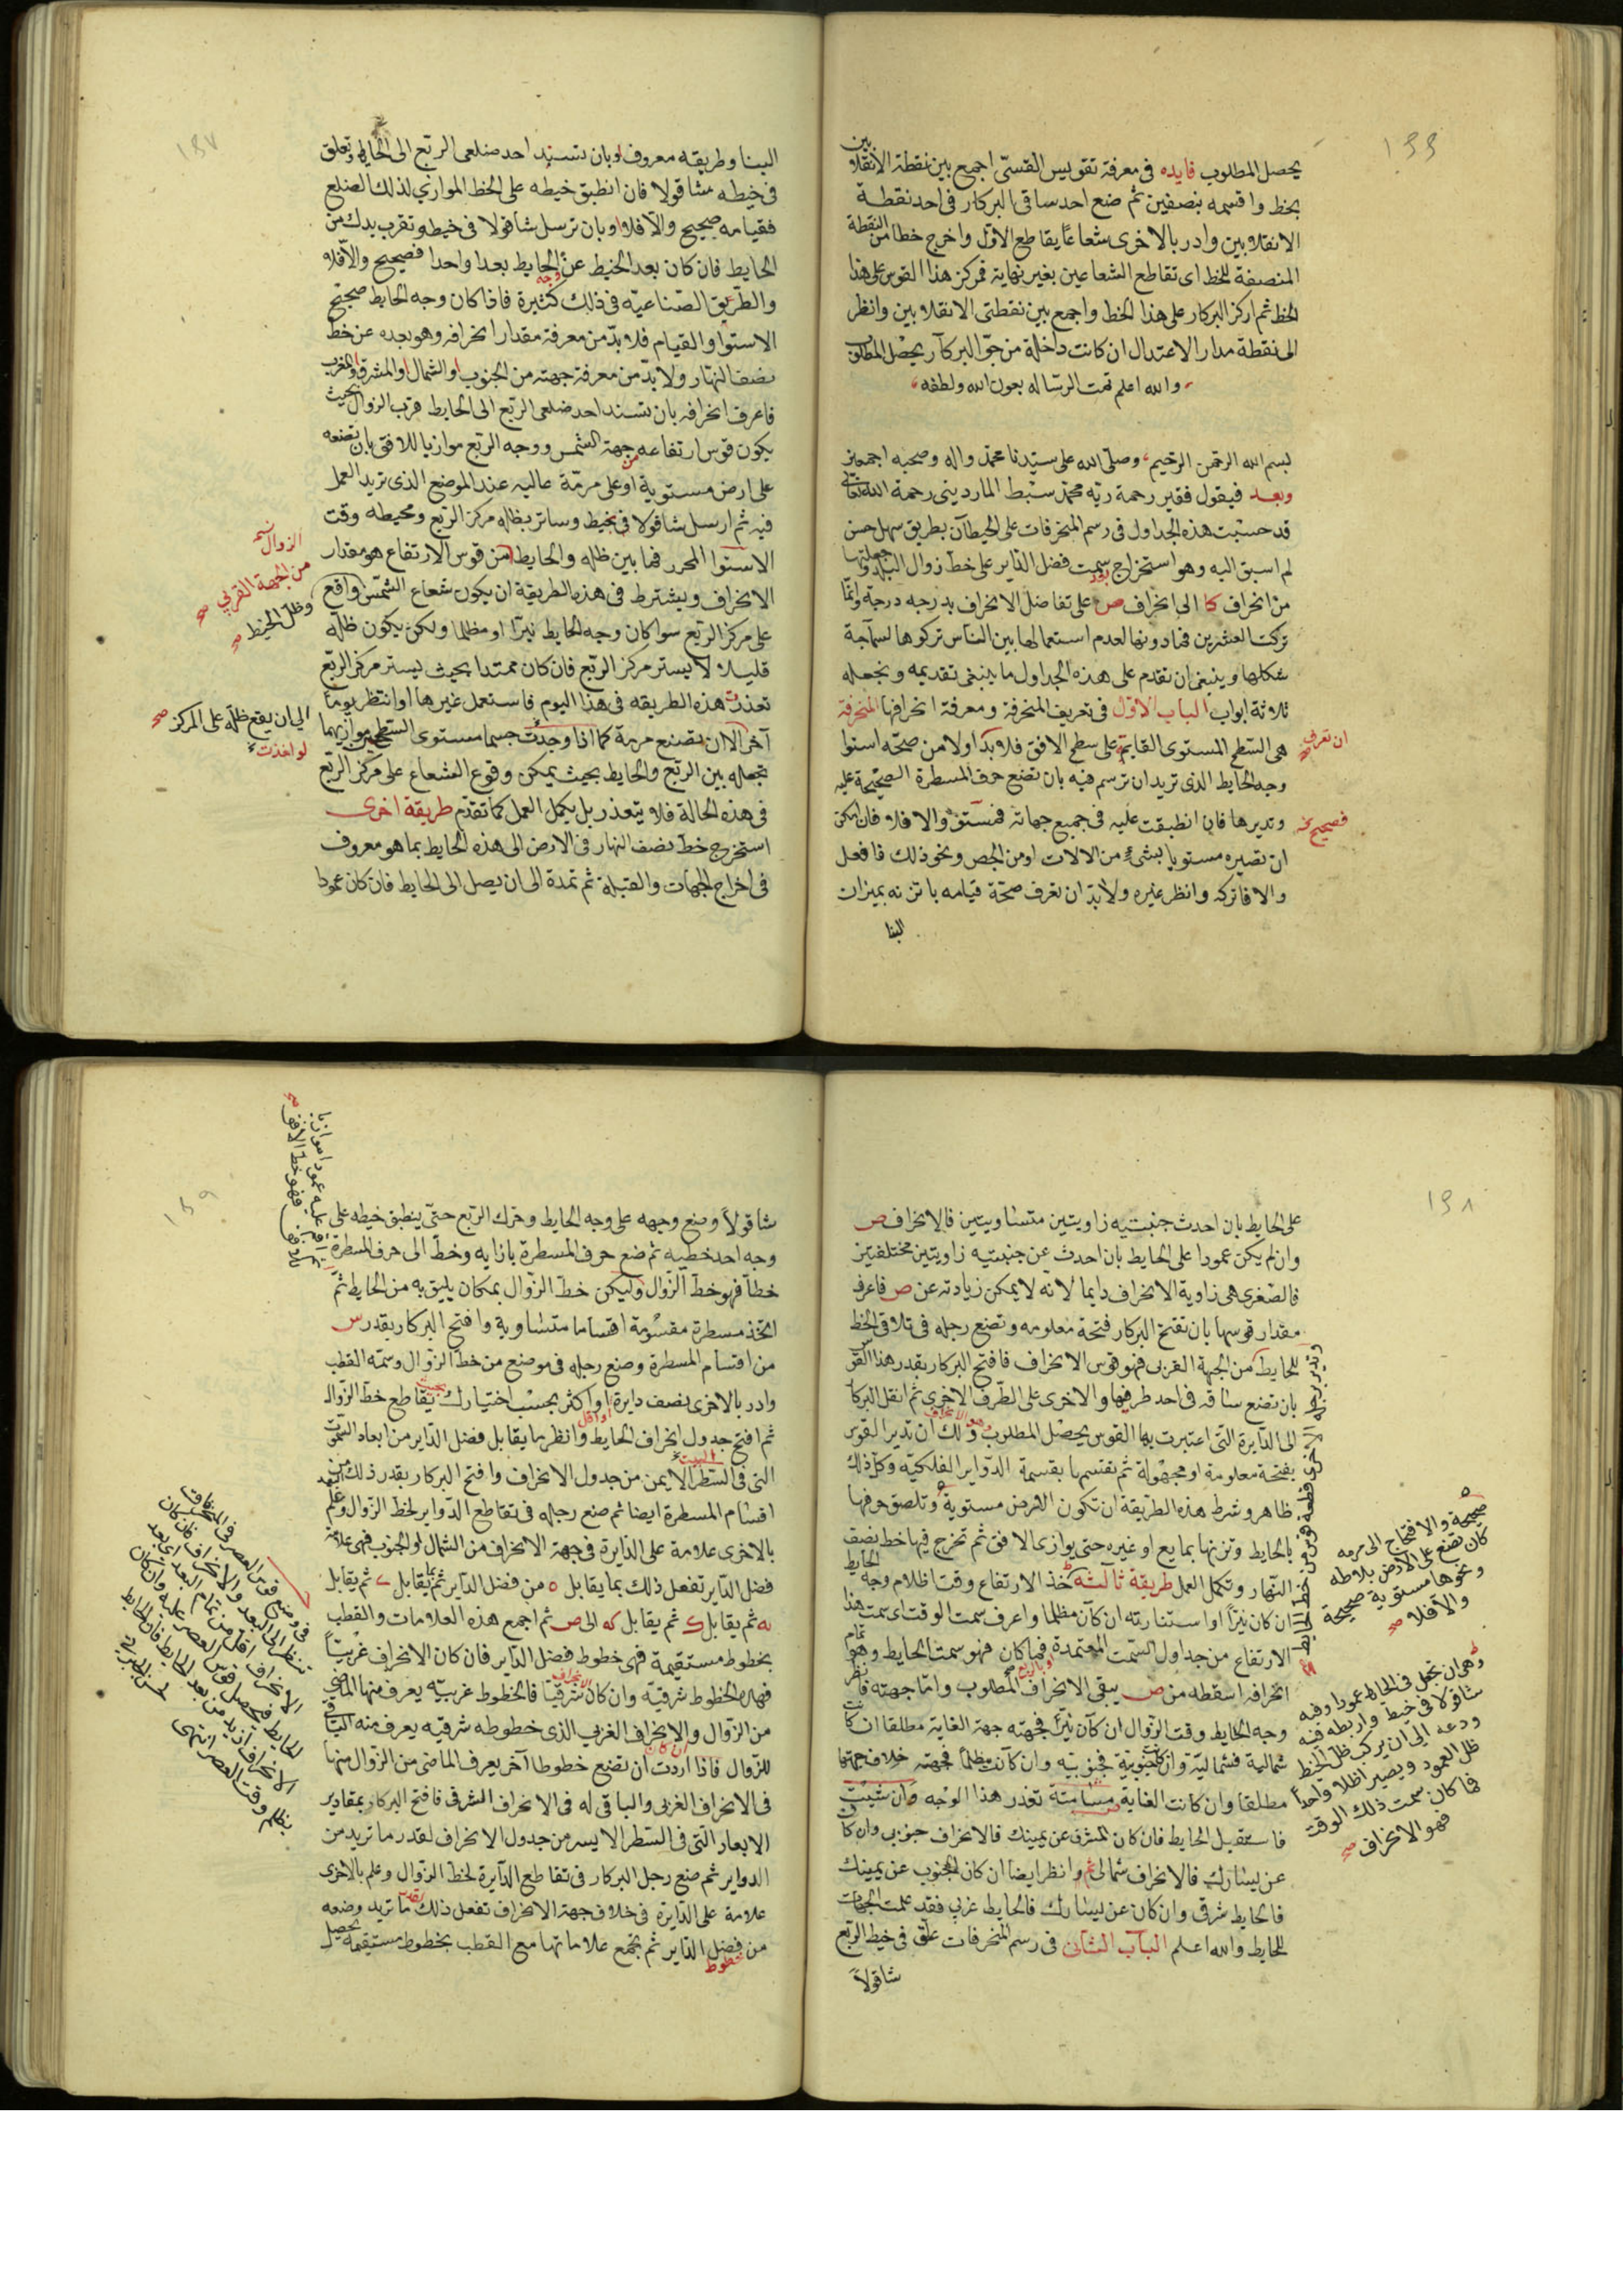 ١٣٦
يحصل المطلوب فايده في معرفة تقويس القسىّ اجمع بين نقطة الانقلابين
بخط واقسمه بنصفين ثم ضع احد ساقى البركار في احد نقطة
الانقلابين وادر بالاخرى شعاعًا يقاطع الاوّل واخرج خطا من النقطة
المنصفة للخط اى تقاطع الشعاعين بغير نهاية فمركز هذا القوس على هذا
الخط ثم اركز البركار على هذا الخط واجمع بين نقطتى الانقلابين وانظر
الى نقطة مدار الاعتدال ان كانت داخلة من جوّ البركار يحصل المطلوب
والله اعلم تمت الرساله بعون الله ولطفه
بسم الله الرحمن الرحيم وصلى الله على سيّدنا محمّد واله وصحبه اجمعين
وبعد فيقول فقير رحمة ربّه محمّد سبط المارديني رحمة الله تعالى
قد حسبت هذه الجداول في رسم المنحرفات على الحيطان بطريق سهل حسن
لم اسبق اليه وهو استخراج سمت فضل الدّاير على خطّ زوال البلد وجعلتها
من انحراف كا الى انحراف ص على تفاضل الانحراف بدرجه درجة وانّما
تركت العشرين فما دونها لعدم استعمالها بين الناس تركوها لسماجة
شكلها وينبغى ان نقدم على هذه الجداول ما ينبغى تقديمه ونجعله
ثلاثة ابواب الباب الاوّل في تعريف المنحرفة ومعرفة انحرافها المنحرفة
هى السّطح المستوى القايم على سطح الافق فلا بدّ اولا من صحّة استوا
ان تعرف
وجه الحايط الذى تريد ان ترسم فيه بان تضع حرف المسطرة الصحيحة عليه
وتديرها فان انطبقت عليه في جميع جهاته فمستوٍ والا فلا فان امكن
فصحيح
ان تصيره مستويا بشىء من الالات او من الجص ونحو ذلك فافعل
والا فاتركه وانظر غيره ولا بدّ ان تعرف صحّة قيامه بان تزنه بميزان
البنا
١٣٧
البنا وطريقه معروف او بان تسند احد ضلعى الربع الى الحايط وتعلق
في خيطه شاقولا فان انطبق خيطه على الخط الموازي لذلك الضلع
فقيامه صحيح والّا فلا او بان ترسل شاقولا في خيط وتقرب يدك من
الحايط فان كان بعد الخيط عن وجه الحايط بعدا واحدا فصحيح والّا فلا
والطّريق الصّناعيّه في ذلك كثيرة فاذا كان وجه الحايط صحيح
الاستوا والقيام فلا بدّ من معرفة مقدار انحرافه وهو بعده عن خطّ
نصف النهّار ولا بدّ من معرفة جهته من الجنوب او الشمال او المشرق او المغرب
فاعرف انحرافه بان تسند احد ضلعى الربع الى الحايط قرب الزوال بحيث
يكون قوس ارتفاعه من جهة الشمس ووجه الربع موازيا للافق بان تضعه
على ارض مستوية او على مرمّة عاليه عند الموضع الذى تريد العمل
فيه ثم ارسل شاقولا في خيط وساتر بظله مركز الربع ومحيطه وقت
الاستوا المحرر فما بين ظله والحايط من قوس الارتفاع هو مقدار
الزوال
من الجهة القربي صح
الانحراف ويشترط في هذه الطريقة ان يكون شعاع الشمس واقع
وظل الخيط صح
على مركز الربع سوا كان وجه الحايط نيّرا او مظلما ولكن يكون ظله
قليلا لا يستر مركز الربع فان كان ممتدا بحيث يستر مركز الربع
تعذرت هذه الطريقه في هذا اليوم فاستعمل غيرها او انتظر يوما
الى ان يقع ظله على المركز صح
آخر الا ان تصنع مرمة كما اذا وجدت جسما مستوى السّطحين موازيهما
لو اخذت
تجعله بين الربع والحايط بحيث يمكن وقوع الشعاع على مركز الربع
في هذه الحالة فلا يتعذر بل يكمل العمل كما تقدّم طريقة اخرى
استخرج خطّ نصف النهار في الارض الى هذه الحايط بما هو معروف
في اخراج الجهات والقبلة ثم تمدة الى ان يصل الى الحايط فان كان عمودا
١٣٨
على الحايط بان احدث جنبتيه زاويتين متساويتين فالانحراف ص
وان لم يكن عمودا على الحايط بان احدث عن جنبتيه زاويتين مختلفتين
فالصّغرى هى زاوية الانحراف دايما لانه لا يمكن زيادته عن ص فاعرف
مقدار قوسها بان تفتح البركار فتحة معلومه وتضع رجله في تلاقى الخط
وتدير رجله الاخرى قطعة قوس من خط الحايط
للحايط من الجهة القربى فهو قوس الانحراف فافتح البركار بقدر هذا القوس
بان تضع ساقه في احد طرفيها والاخرى على الطّرف الاخرى ثم انقل البركار
الى الدّايرة التى اعتبرت بها القوس يحصل المطلوب وهو الانحراف ولك ان تدير القوس
بفتحة معلومة او مجهولة ثم تقسمها بقسمة الدّواير الفلكيّه وكل ذلك
ظاهر وشرط هذه الطّريقة ان تكون الارض مستوية وتلصق حرفها
صحيحة والا فتحتاج الى مرمه
كان تضع على الارض بلاطه
ونحوها مستوية صحيحة
والا فلا صح
بالحايط وتزنها بمايع او غيره حتى يوازى الافق ثم تخرج فيها خط نصف
النّهار وتكمل العمل طريقة ثالثه خذ الارتفاع وقت اظلام وجه الحايط
ان كان نيّراً او استنارته ان كان مظلما واعرف سمت الوقت اى سمت هذا
الارتفاع من جداول السّمت المعتمدة فما كان فهو سمت الحايط وهو تمام
انحرافه اسقطه من ص يبقى الانحراف المطلوب وامّا جهته فانظر
وهى ان تجعل في الحايط عمودا وفيه
شاقولا في خيط واربطه فيه
ودعه الى ان يركب ظل الخيط
ظل العمود ويصير اظلا واحداً
فما كان سمت ذلك الوقت
فهو الانحراف صح
وجه الحايط وقت الزّوال ان كان نيّراً فجهته جهة الغاية مطلقا ان كانت
شمالية فشماليّة وان كانت جنوبيّة فجنوبيّه وان كان مظلماً فجهته خلاف جهتها
مطلقا وان كانت الغاية مسامتة تعذر هذا الوجه وان شئت
فاستقبل الحايط فان كان المشرق عن يمينك فالانحراف جنوبى وان كان
عن يسارك فالانحراف شمالى ثم انظر ايضا ان كان الجنوب عن يمينك
فالحايط شرقى وان كان عن يسارك فالحايط غربي فقد علمت الجهات
للحايط والله اعلم الباب الثانى في رسم المنحرفات علّق في خيط الربع
شاقولاً
١٣٩
شاقولاً وضع وجهه على وجه الحايط وحرك الربع حتى ينطبق خيطه على
وجه احد خطيه ثم ضع حرف المسطرة بازايه وخطّ الى حرف المسطرة
ثم اقم عليه عمودا موازيا
للافق فهو خط الافق صح
خطاً فهو خطّ الزّوال وليكن خطّ الزّوال بمكان يليق به من الحايط ثم
اتخذ مسطرة مقسُومة اقساما متساوية وافتح البركار بقدر س
من اقسام المسطرة وضع رجله في موضع من خط الزّوال وسمّه القطب
وادر بالاخرى نصف دايرة او اكثر بحسب اختيارك بحيث يقاطع خطّ الزّوال
او اقل
ثم افتح جدول انحراف الحايط وانظر ما يقابل فضل الدّاير من ابعاد السّمت
التى في السّطر الايمن من جدول الانحراف وافتح البركار بقدر ذلك من
اقسام المسطرة ايضا ثم ضع رجله في تقاطع الدّواير لخط الزّوال وعلّم
بالاخرى علامة على الدّايرة في جهة الانحراف من الشمال او الجنوب فهى علامة
فضل الدّاير تفعل ذلك بما يقابل ه من فضل الدّاير ثم بما يقابل ى ثم يقابل
يه ثم يقابل ك ثم يقابل كه الى ص ثم اجمع هذه العلامات والقطب
بخطوط مستقيمة فهى خطوط فضل الدّاير فان كان الانحراف غربيّاً
فهذه الخطوط شرقيّه وان كان الانحراف شرقيّا فالخطوط غربيّه يعرف منها الماضى
من الزّوال والانحراف الغربي الذى خطوطه شرقيه يعرف منه الباقى
للزّوال فاذا اردت ان تضع خطوطا آخر يعرف الماضى من الزّوال منها
في الانحراف الغربى والباقى له في الانحراف الشرقى فافتح البركار بمقادير
الابعاد التى في السّطر الايسر من جدول الانحراف لقدر ما تريد من
الدواير ثم ضع رجل البركار في تقاطع الدّايرة لخط الزّوال وعلم بالاخرى
علامة على الدّايرة في خلاف جهة الانحراف تفعل ذلك بقدر ما تريد وضعه
من فضل الدّاير ثم تجمع علاماتها مع القطب بخطوط مستقيمه يحصل
خطوط